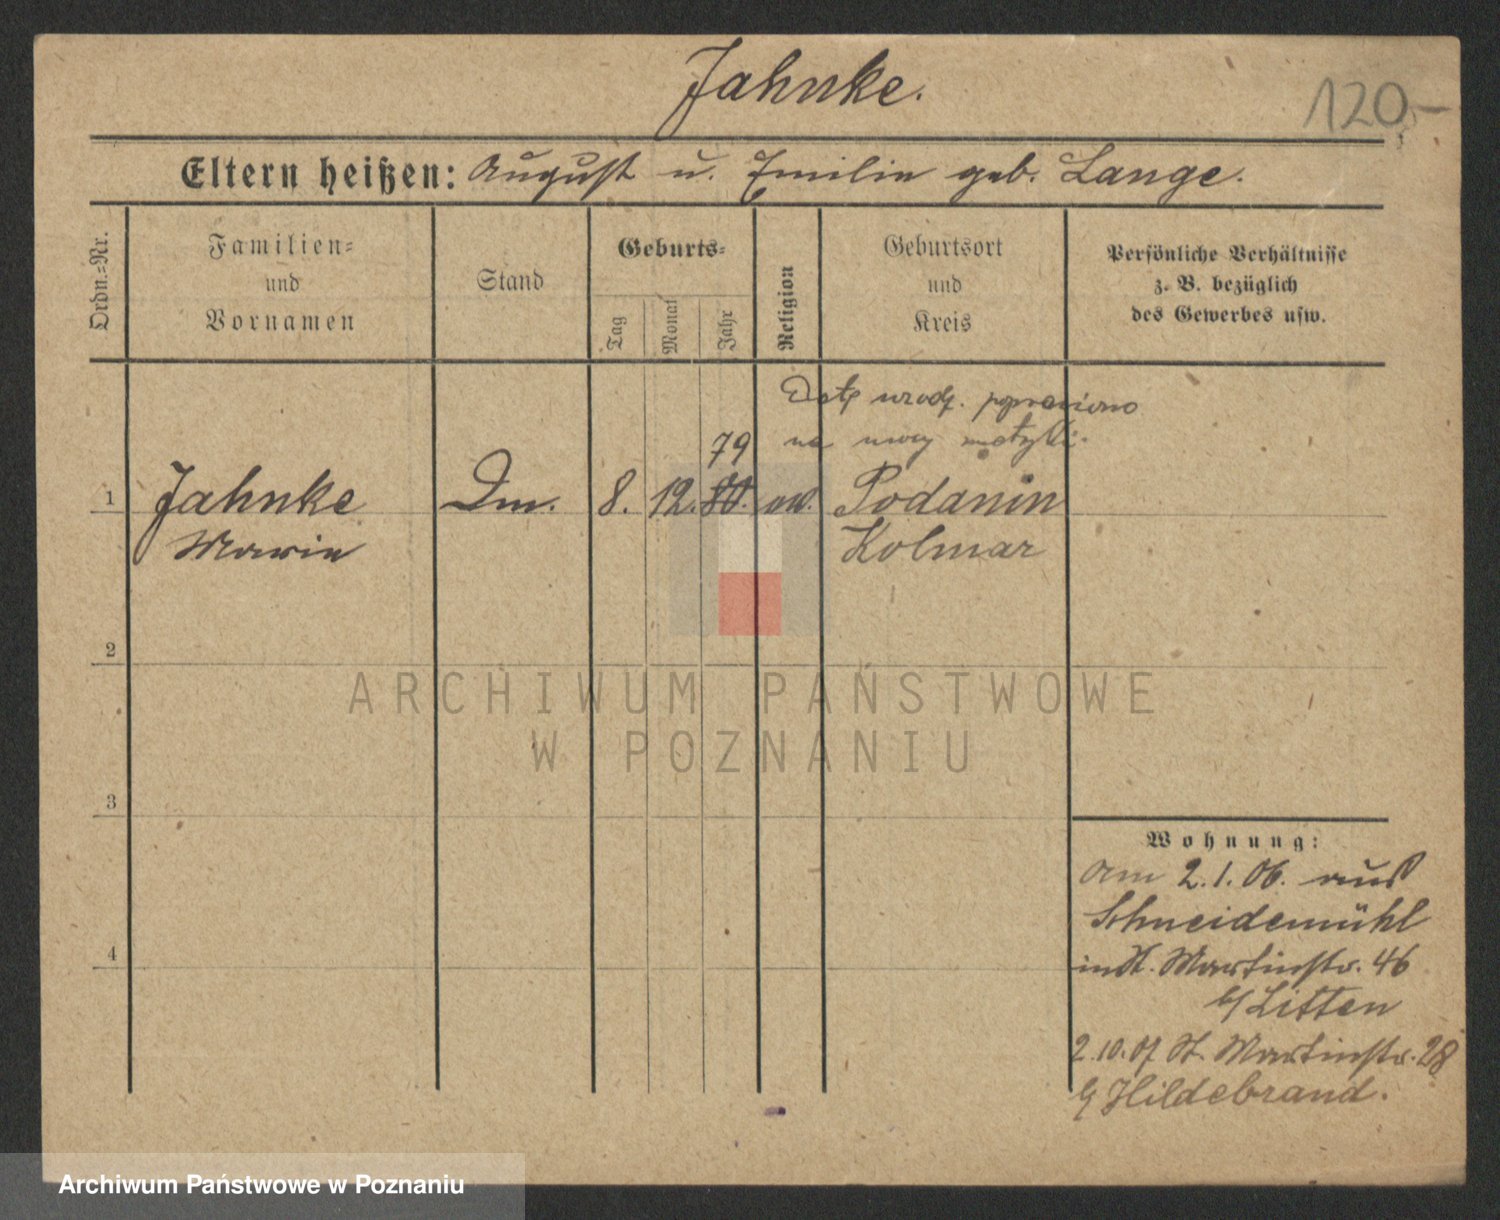 Jahnke.
120,-
Eltern heißen: August u. Emilie geb. Lange.
Ordn.=Nr.
Familien=
und
Vornamen
Stand
Geburts=
Tag
Monat
Jahr
Religion
Geburtsort
und
Kreis
Persönliche Verhältnisse
z. B. bezüglich
des Gewerbes usw.
Datę urodz. poprawiono
na mocy metryki.
79
1 Jahnke Dm. 8. 12. ev. Podanin
Marie Kolmar
2
3
4
Wohnung:
Am 2.1.06. aus
Schneidemühl
in St. Martinstr. 46
b/ Litten
2.10.07 St. Martinstr. 28
b/ Hildebrand.
ARCHIWUM PAŃSTWOWE
W POZNANIU
Archiwum Państwowe w Poznaniu